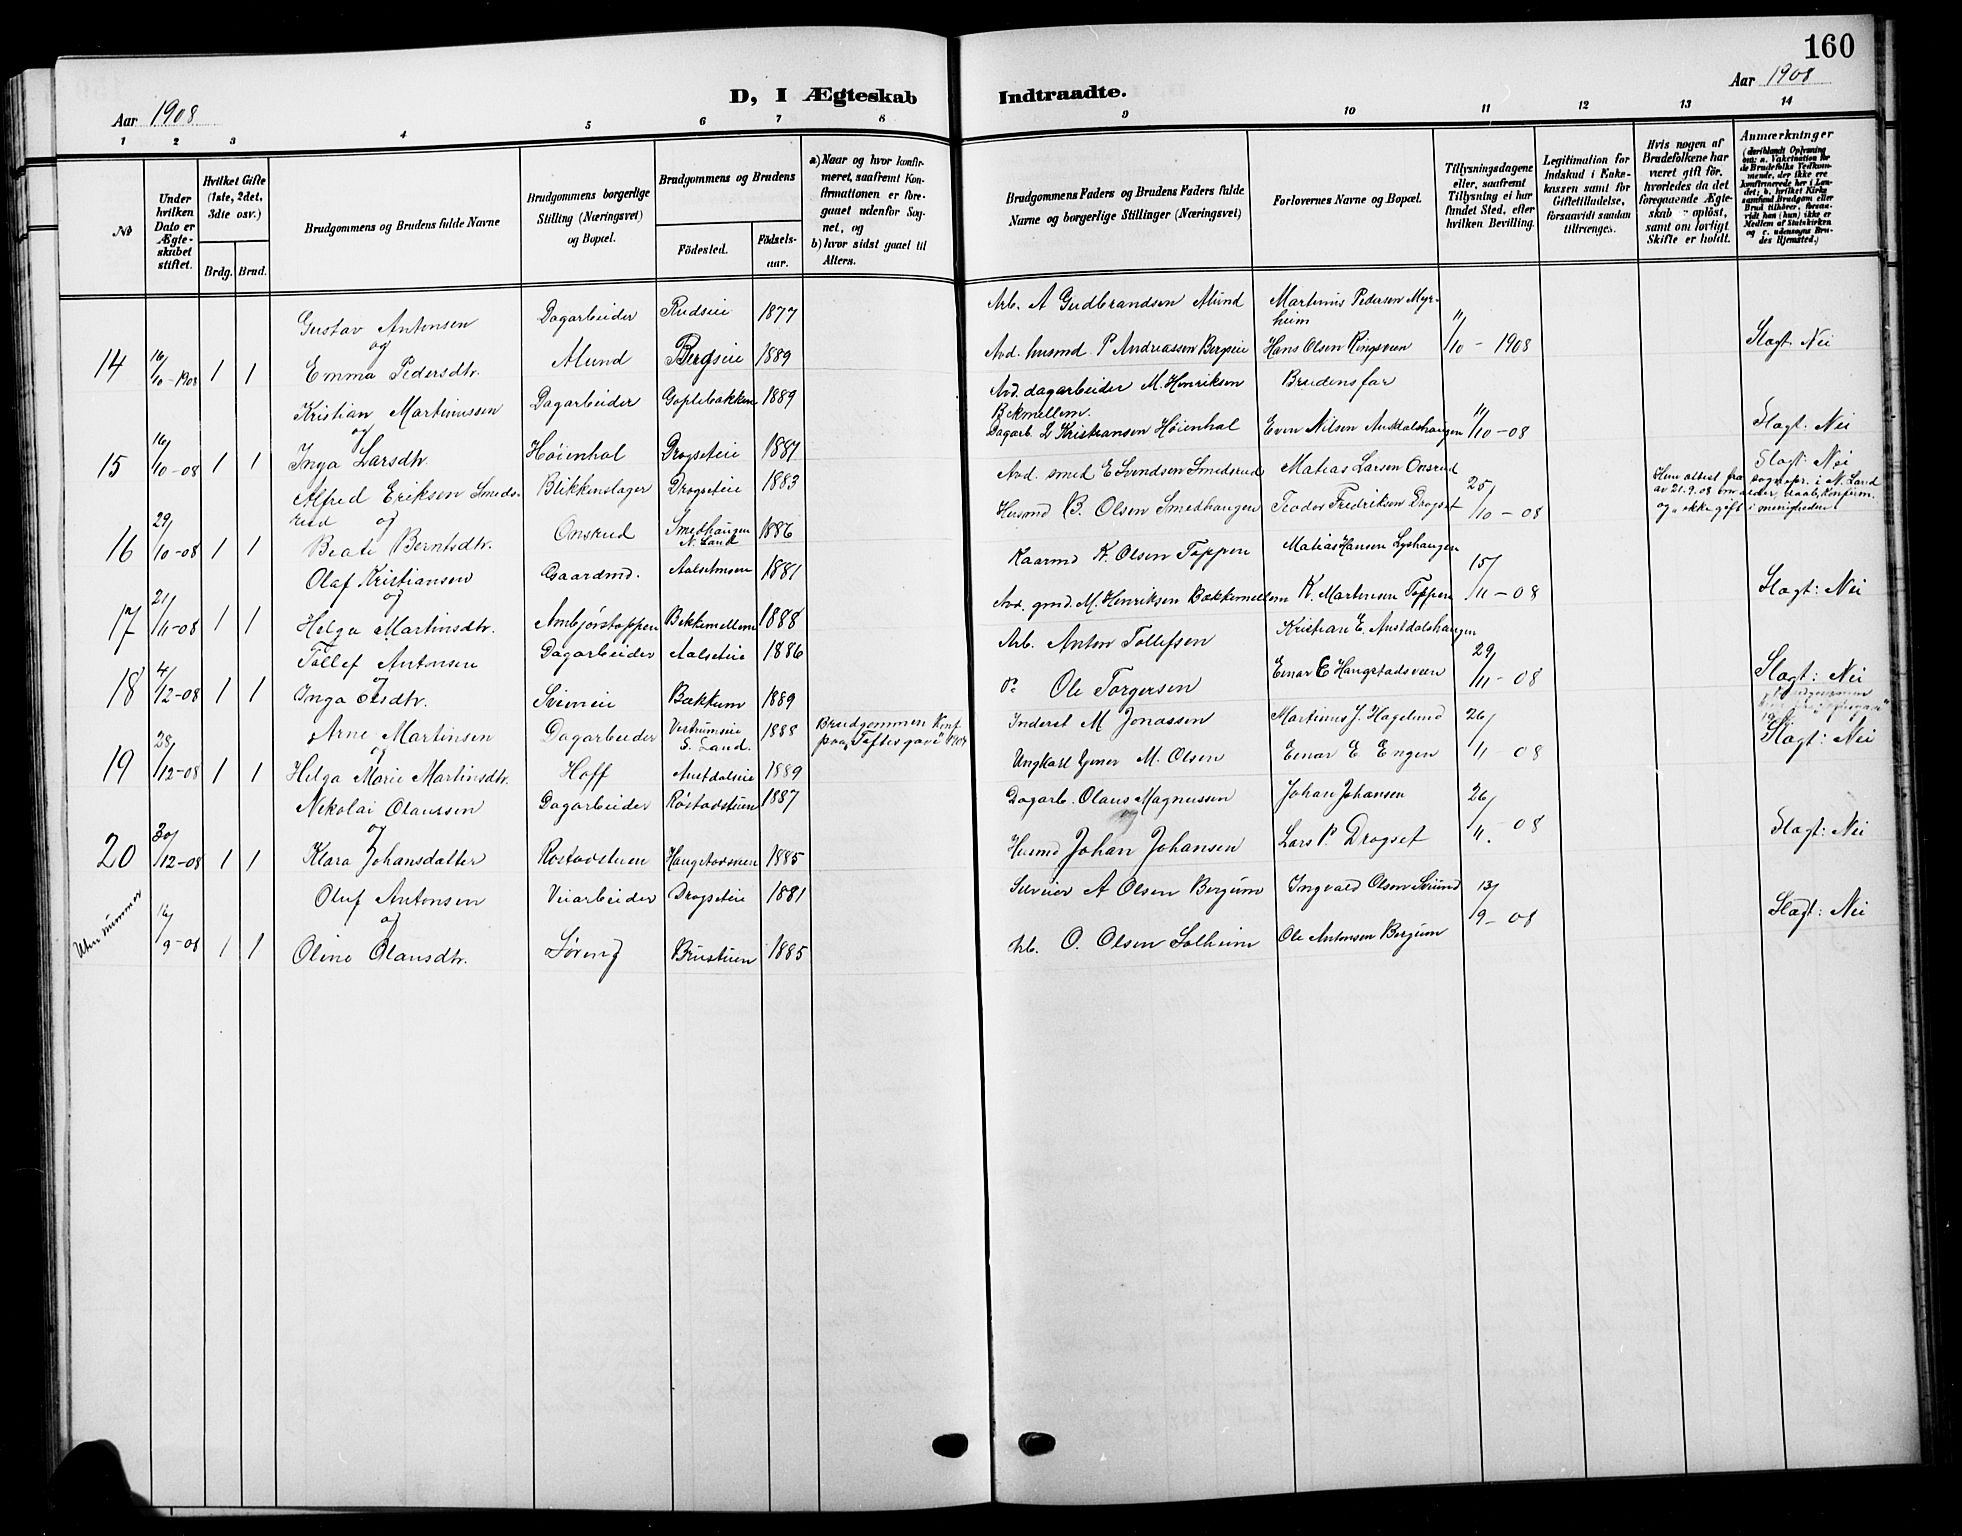 160
Aar 1908
D, I Ægteskab Indtraadte.
Aar 1908
1 2 3 4 5 6 7 8 9 10 11 12 13 14
No
Under hvilken Dato er Ægteskabet stiftet.
Hvilket Gifte (1ste, 2det, 3die osv.)
Brdg. Brud.
Brudgommens og Brudens fulde Navne
Brudgommens borgerlige Stilling (Næringsvei) og Bopæl.
Brudgommens og Brudens
Fødested. Fødselsaar.
a) Naar og hvor konfirmeret, saafremt Konfirmationen er foregaaet udenfor Sognet, og
b) hvor sidst gaaet til Alters.
Brudgommens Faders og Brudens Faders fulde Navne og borgerlige Stillinger (Næringsvei)
Forlovernes Navne og Bopæl.
Tillysningsdagene eller, saafremt Tillysning ei har fundet Sted, efter hvilken Bevilling.
Legitimation for Indskud i Enkekassen samt for Giftetilladelse, forsaavidt saadan tiltrænges.
Hvis nogen af Brudefolkene har været gift før, hvorledes da det foregaaende Ægteskab er opløst, samt om lovligt Skifte er holdt.
Anmærkninger
(deriblandt Oplysning om: a. Vakcination for de Brudefolks Vedkommende, der ikke ere konfirmerede her i Landet; b. hvilket Kirkesamfund Brudgom eller Brud tilhører, forsaavidt han (hun) ikke er Medlem af Statskirken og c. udensogns Brudes Hjemsted.)
Gustav Antonsen Dagarbeider Rudseie 1877 Arb. A Gudbrandsen Alund Martinus Pedersen Myrheim
og
14 16/10-1908 1 1 Emma Pedersdtr. Alund Bergseie 1889 Avd. husmd P Andreassen Bergseie Hans Olsen Ringsveen 11/10-1908 Slagt. Nei
Kristian Martinussen Dagarbeider Goplebakken 1889 Avd. dagarbeider M. Henriksen Bekmellem. Brudens far
og
15 16/10-08 1 1 Inga Larsdtr. Høienhal Drogseteie 1887 Dagarb. L Kristiansen Høienhal Even Nilsen Austdalshaugen 11/10-08 Slagt. Nei
Alfred Eriksen Smedsrud Blikkenslager Drogseteie 1883 Avd. smed E Svendsen Smedsrud Matias Larsen Onsrud Slagt: Nei
og
16 29/10-08 1 1 Beate Berntsdtr. Onsrud Smedhaugen N. Land 1886 Husmd B. Olsen Smedhaugen Teodor Fredriksen Drogset 25/10-08
Hun attest fra sognepr. i N. Land
av 21.9.08 om alder, daab, konfirm.
og "ikke gift i menigheden"
Olaf Kristiansen Gaardmd. 1881 Kaarmd K. Olsen Toppen Matias Hansen Lyshaugen
og
17 21/11-08 1 1 Helga Martinsdtr. Ambjørstoppen Bekkemellem 1888 Avd. gmd. M. Henriksen Bækkemellem K. Martinsen Toppen 15/11-08 Slagt: Nei
Tollef Antonsen Dagarbeider Aalseteie 1886 Arb. Anton Tollefsen Kristian E. Austdalshaugen
og
18 4/12-08 1 1 Inga Olsdtr. Bækkum 1889 Do Ole Torgersen Einar E Haugstadsveen 29/11-08 Slagt: Nei
Arne Martinsen Dagarbeider Vestrumseie S. Land. 1888 Brudgommen Konf. paa "Toftesgave" Inderst M Jonassen Martinus J. Hagelund
og
19 28/12-08 1 1 Helga Marie Martinsdtr. Hoff Austdalseie 1889 Ungkarl Gmer M. Olsen Einar E Engen 26/11-08 Slagt: Nei
Nekolai Olaussen Dagarbeider Røstadstuen 1887 Dagarb. Olaus Magnussen Johan Johansen
og
20 30/12-08 1 1 Klara Johansdatter Røstadstuen Haugstadsveen 1885 Husmd Johan Johansen Lars P. Drogset 26/11.-08 Slagt: Nei
Oluf Antonsen Veiarbeider Drogseteie 1881 Selveier A Olsen Bergum Ingvald Olsen
og
Uten nummer 16/9-08 1 1 Oline Olausdtr. Søreng Brustuen 1885 Arb. O. Olsen Solheim Ole Antonsen Bergum 13/9-08 Slagt: Nei